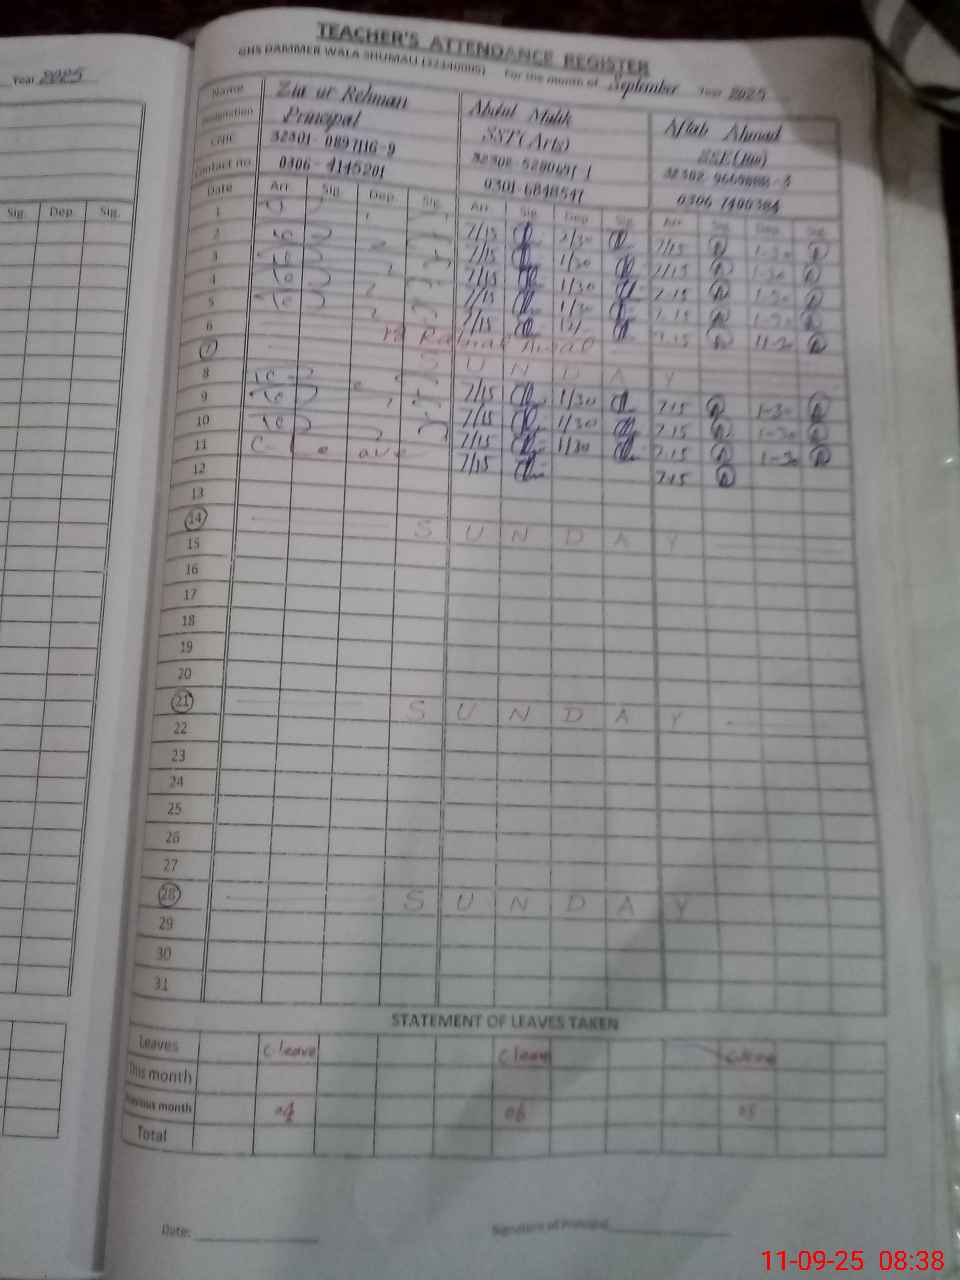 Year 2025
Sig. Dep. Sig.
TEACHER'S ATTENDANCE REGISTER
GHS DAMMER WALA SHUMALI (32340005) For the month of September Year 2025
Name Zia ur Rehman Abdul Malik Aftab Ahmad
Designation Principal SST (Arts) SSE (Bio)
CNIC 32301-0897116-9
Contact no. 0306-4145201 0301-6848547 0306 7400384
Date Arr. Sig. Dep. Sig. Arr. Sig. Dep. Sig. Arr. Sig. Dep. Sig.
1 7/15 1/30 7/15 1-30
2 7/15 1/30 7/15 1-30
3 7/15 1/30 7/15 1-30
4 7/15 1/30 7/15 1-30
5 7/15 7.15
6
7 S U N D A Y
8 7/15 1/30 7.15 1-30
9 7/15 1/30 7.15 1-30
10 7/15 1/30 7.15 1-30
11 C- Leave 7/15 7.15
12
13
14 S U N D A Y
15
16
17
18
19
20
21 S U N D A Y
22
23
24
25
26
27
28 S U N D A Y
29
30
31
STATEMENT OF LEAVES TAKEN
Leaves C-leave C leave C-leave
This month
Previous month 04 06 05
Total
Date: Signature of Principal
11-09-25 08:38